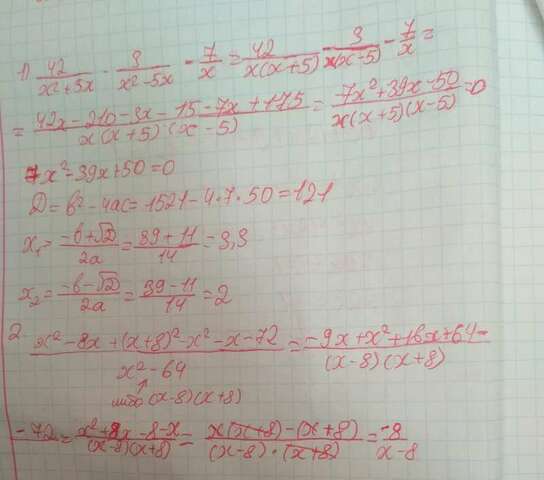 1) 42/(x²+5x) - 3/(x²-5x) - 7/x = 42/(x(x+5)) - 3/(x(x-5)) - 7/x =
= (42x-210-3x-15-7x+175)/(x(x+5)(x-5)) = (7x²+39x-50)/(x(x+5)(x-5)) =0
7x²-39x+50=0
D=b²-4ac=1521-4·7·50=121
x₁= (-b+√D)/2a = (39+11)/14 = 3,3
x₂= (-b-√D)/2a = (39-11)/14 = 2
2. (x²-8x+(x+8)²-x²-x-72)/(x²-64) = (-9x+x²+16x+64-)/((x-8)(x+8))
либо (x-8)(x+8)
-72 = (x²+8x-8-x)/((x-8)(x+8)) = (x(x+8)-(x+8))/((x-8)·(x+8)) = -8/(x-8)